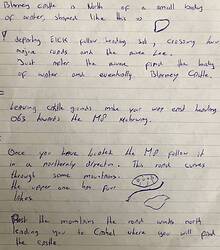 Blarney Castle is North of a small body
of water, shaped like this is
departing EICK follow heading 361, crossing four
major roads and the river Lee.
Just after the river find the body
of water and eventually, Blarney Castle.
Leaving castle grounds make your way east heading
063 towards the M8 Motorway.
Once you have located the M8 follow it
in a northernly direction. This road curves
through some mountains.
the upper one has four
lakes.
Past the mountains the road winds north
leading you to Cashel where you will find
the castle.